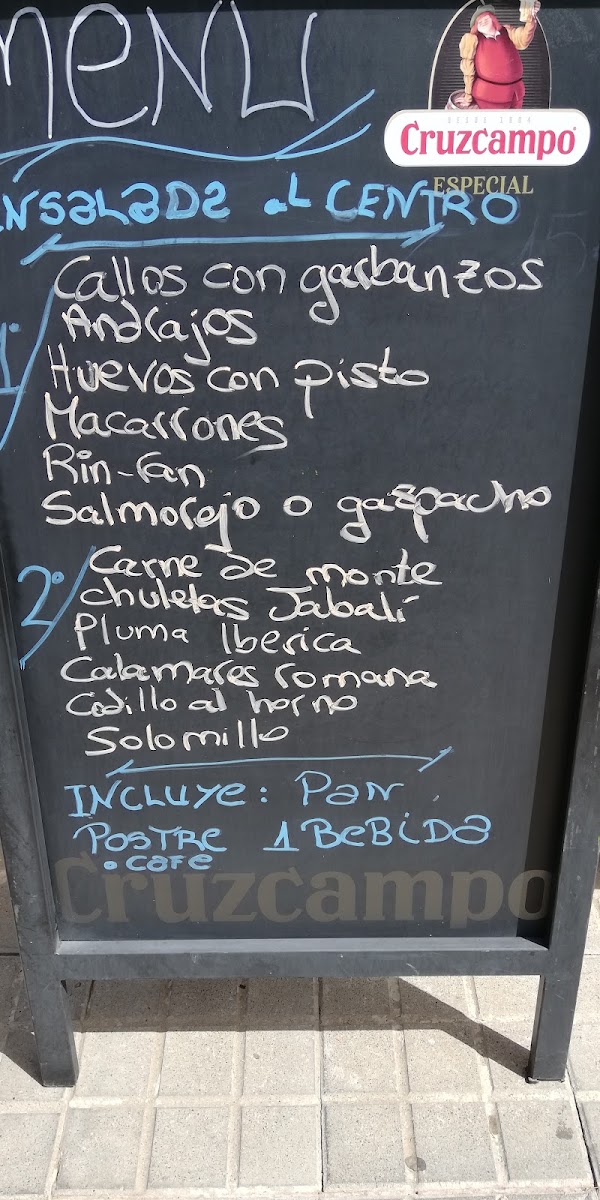 MENU
DESDE 1904
Cruzcampo
ESPECIAL
ENSALADA aL CENTRO
1º
Callos con garbanzos
Andrajos
Huevos con pisto
Macarrones
Rin-ran
Salmorejo o gazpacho
2º
Carne de monte
chuletas Jabalí
Pluma Iberica
Calamares romana
Codillo al horno
Solomillo
INCLUYE: Pan
POSTRE 1 BEBIDA
o cafe
Cruzcampo